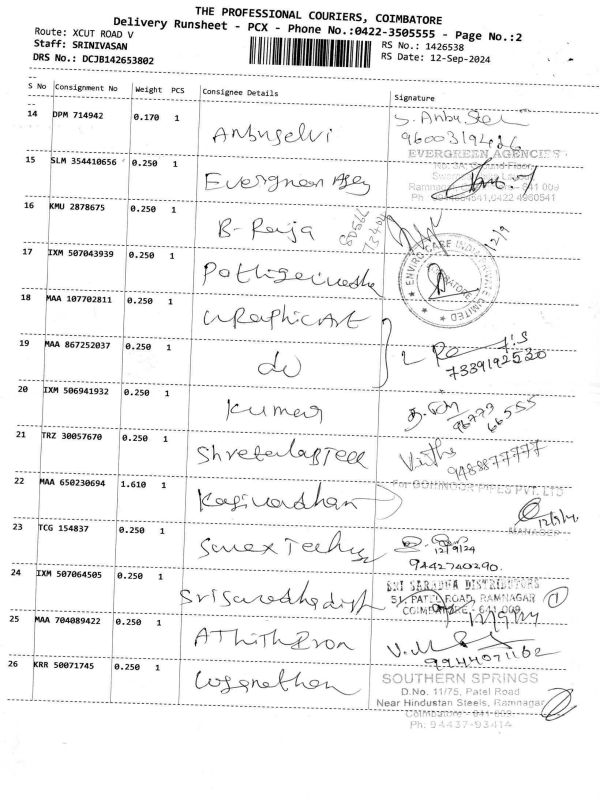 THE PROFESSIONAL COURIERS, COIMBATORE
Delivery Runsheet - PCX - Phone No.:0422-3505555 - Page No.:2
Route: XCUT ROAD V
Staff: SRINIVASAN
DRS No.: DCJB142653802
RS No.: 1426538
RS Date: 12-Sep-2024
S No Consignment No Weight PCS Consignee Details Signature
14 DPM 714942 0.170 1 Anbuselvi
9600319426
15 SLM 354410656 0.250 1 Evergreen
EVERGREEN AGENCIES
16 KMU 2878675 0.250 1 B. Raja
12/9
17 IXM 507043939 0.250 1
ENVIRO CARE INDIA PRIVATE LIMITED
18 MAA 107702811 0.250 1 Graphic Art
19 MAA 867252037 0.250 1 do
7339192530
20 IXM 506941932 0.250 1 Kumar
96773
66555
21 TRZ 30057670 0.250 1
9488877777
22 MAA 650230694 1.610 1
PIPES PVT. LTD
MANAGER
23 TCG 154837 0.250 1
12/9/24
9442740290.
24 IXM 507064505 0.250 1
SRI SARADHA DISTRIBUTORS
51, PATEL ROAD, RAMNAGAR
COIMBATORE - 641 009
1
25 MAA 704089422 0.250 1
9944071162
26 KRR 50071745 0.250 1 Loganathan
SOUTHERN SPRINGS
D.No. 11/75, Patel Road
Near Hindustan Steels, Ramnagar
Coimbatore - 641 009
Ph: 94437-93414